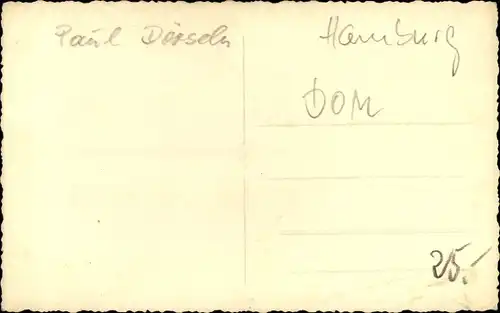 Paul Dösseln
Hamburg
DOM
25.-